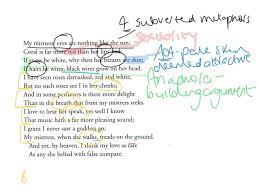 4 subverted metaphors
My mistress' eyes are nothing like the sun;
Sexuality
Coral is far more red than her lips' red;
If snow be white, why then her breasts are dun;
AOA - pale skin
deemed attractive
If hairs be wires, black wires grow on her head.
I have seen roses damasked, red and white,
Anaphora -
building argument
But no such roses see I in her cheeks;
And in some perfumes is there more delight
Than in the breath that from my mistress reeks.
I love to hear her speak, yet well I know
That music hath a far more pleasing sound;
I grant I never saw a goddess go;
My mistress, when she walks, treads on the ground.
And yet, by heaven, I think my love as rare
As any she belied with false compare.